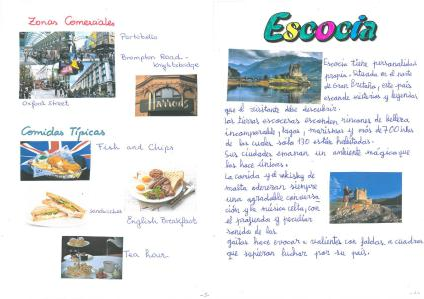 Zonas Comerciales
Portobello
Brompton Road -
Knightsbridge
Harrods
Oxford Street
Comidas Típicas
Fish and Chips
Sandwiches
English Breakfast
Tea hour
- 5 -
Escocia
Escocia tiene personalidad
propia. Situada en el norte
de Gran Bretaña, este país
esconde misterios y leyendas
que el visitante debe descubrir.
Las tierras escocesas esconden rincones de belleza
incomparable, lagos, marismas y más de 700 islas
de las cuales, solo 130 están habitadas.
Sus ciudades emanan un ambiente mágico que
las hace únicas.
La comida y el whisky de
malta aderezan siempre
una agradable conversa
ción y la música celta, con
el profundo y peculiar
sonido de las
gaitas hace evocar a valientes con faldas a cuadros
que supieron luchar por su país.